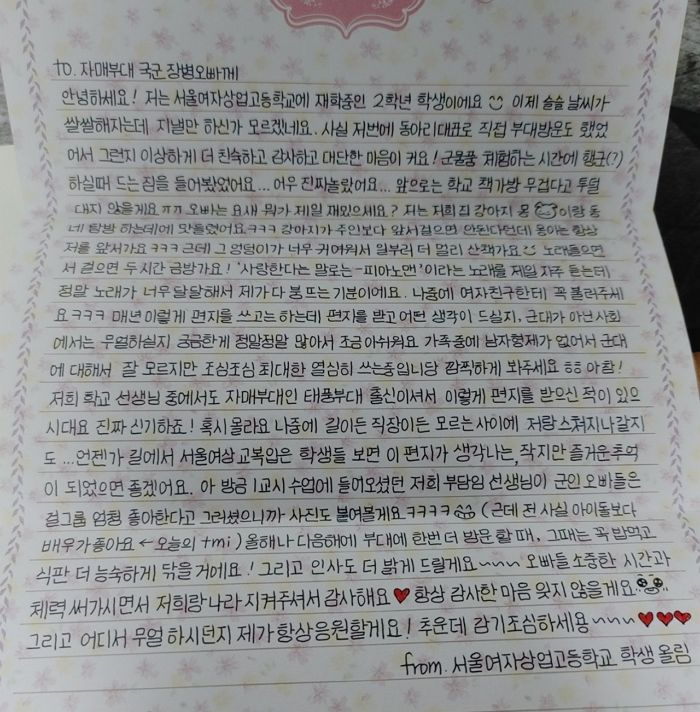 to. 자매부대 국군 장병오빠께
안녕하세요! 저는 서울여자상업고등학교에 재학중인 2학년 학생이에요 이제 슬슬 날씨가
쌀쌀해지는데 잘 지낼만 하신가 모르겠네요. 사실 저번에 동아리대표로 직접 부대방문도 했었
어서 그런지 이상하게 더 친숙하고 감사하고 대단한 마음이 커요! 군물품 체험하는 시간에 행군(?)
하실때 드는 짐을 들어봤었어요... 어우 진짜놀랐어요... 앞으로는 학교 책가방 무겁다고 투덜
대지 않을게요 ㅠㅠ 오빠는 요새 뭐가 제일 재밌으세요? 저는 저희 집 강아지 몽 이랑 동
네 탐방 하는데에 맛들였어요. ㅋㅋㅋ 강아지가 주인보다 앞서걸으면 안된다던데 몽아는 항상
저를 앞서가요 ㅋㅋㅋ 근데 그 엉덩이가 너무 귀여워서 일부러 더 멀리 산책가요 노래들으면
서 걸으면 두시간 금방가요! '사랑한다는 말로는-피아노맨'이라는 노래를 제일 자주 듣는데
정말 노래가 너무 달달해서 제가 다 붕 뜨는 기분이에요. 나중에 여자친구한테 꼭 불러주세
요 ㅋㅋㅋ 매년 이렇게 편지를 쓰고는 하는데 편지를 받고 어떤 생각이 드실지, 군대가 아닌 사회
에서는 무얼하실지 궁금한게 정말정말 많아서 조금 아쉬워요. 가족 중에 남자형제가 없어서 군대
에 대해서 잘 모르지만 조심조심 최대한 열심히 쓰는중입니당 깜찍하게 봐주세요 ㅎㅎ 아참!
저희 학교 선생님 중에서도 자매부대인 태풍부대 출신이셔서 이렇게 편지를 받으신 적이 있으
시대요 진짜 신기하죠! 혹시 몰라요 나중에 길이든 직장이든 모르는 사이에 저랑 스쳐지나갈지
도 ...언젠가 길에서 서울여상교복입은 학생들 보면 이 편지가 생각나는, 작지만 즐거운 추억
이 되었으면 좋겠어요. 아 방금 1교시 수업에 들어오셨던 저희 부담임 선생님이 군인오빠들은
걸그룹 엄청 좋아한다고 그러셨으니까 사진도 붙여볼게요 ㅋㅋㅋㅋ (근데 전 사실 아이돌보다
배우가좋아요 ← 오늘의 tmi) 올해나 다음해에 부대에 한번 더 방문 할 때, 그때는 꼭 밥먹고
식판 더 능숙하게 닦을 거에요! 그리고 인사도 더 밝게 드릴게요~~~ 오빠들 소중한 시간과
체력 써가시면서 저희랑 나라 지켜주셔서 감사해요 ♥ 항상 감사한 마음 잊지 않을게요
그리고 어디서 무얼 하시던지 제가 항상 응원할게요! 추운데 감기조심하세용~~~ ♥♥♥
from. 서울여자상업고등학교 학생 올림